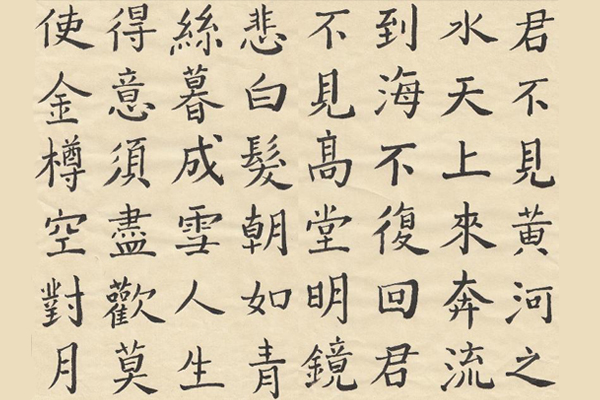 君不見黃河之
水天上來奔流
到海不復回君
不見髙堂明鏡
悲白髮朝如青
絲暮成雪人生
得意須盡歡莫
使金樽空對月